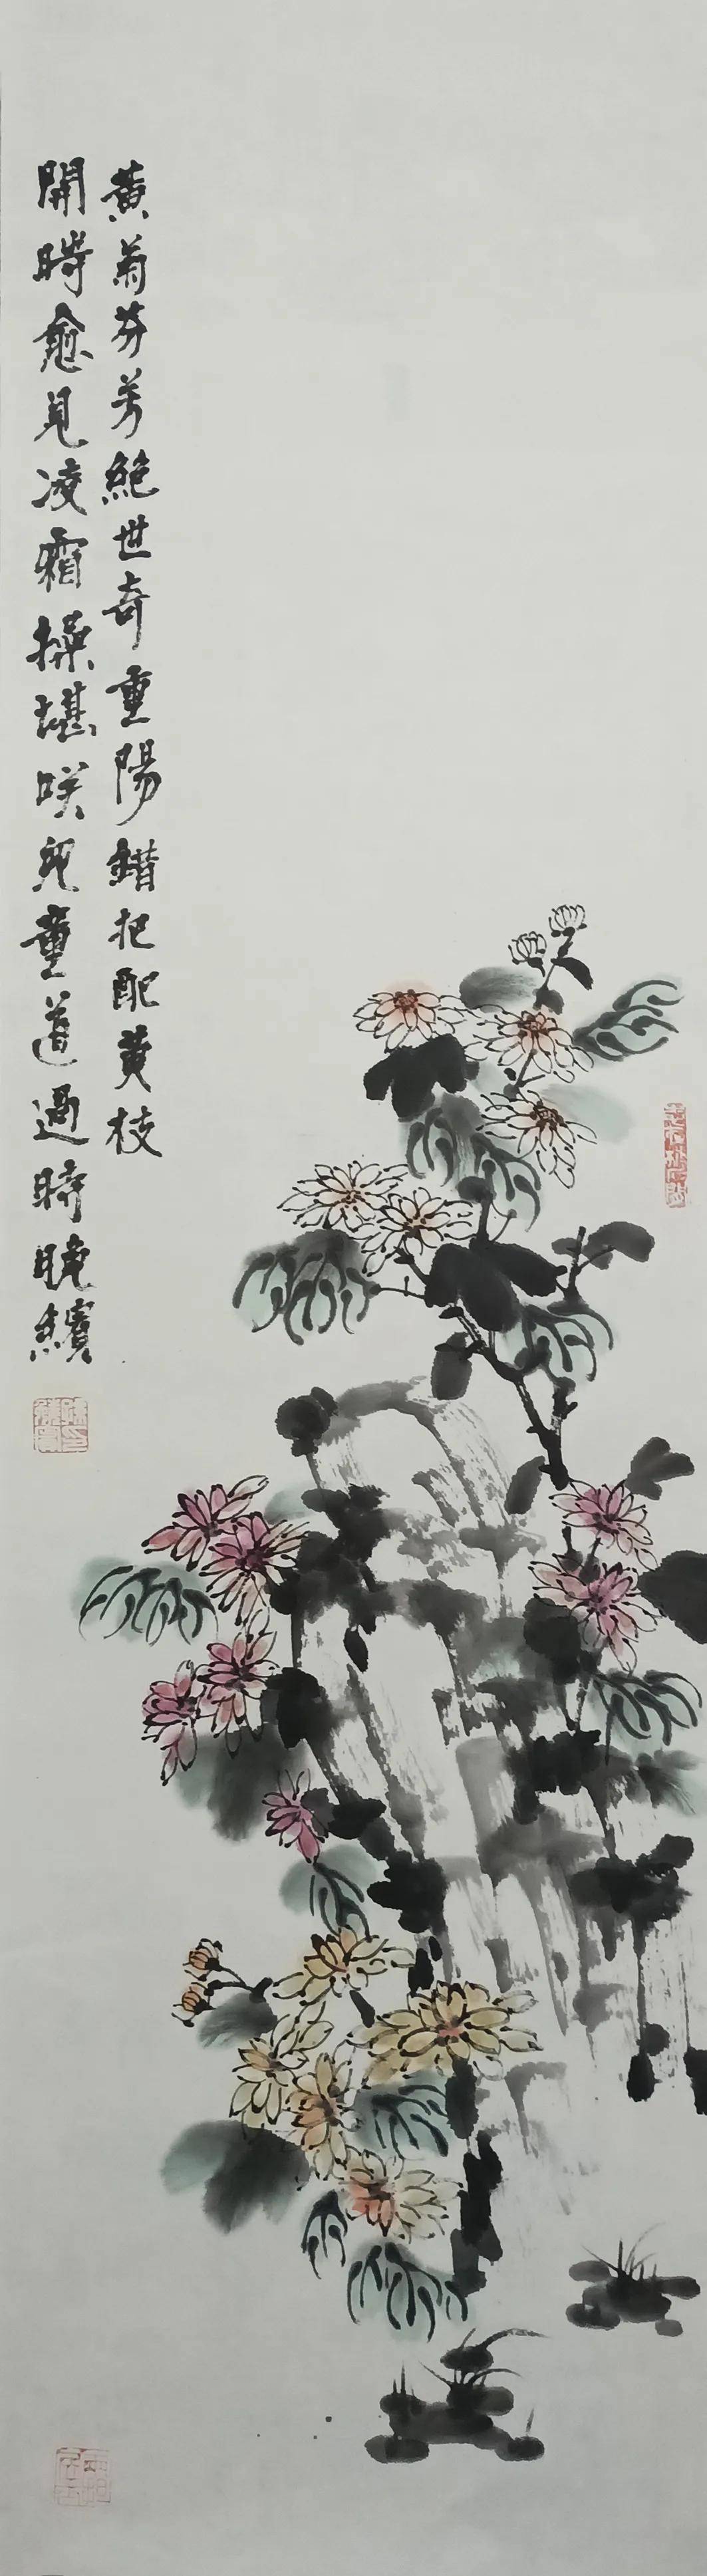 黄菊芬芳絶世奇重陽錯把配黄枝
開時愈見凌霜操堪咲兒童道過時曉繽